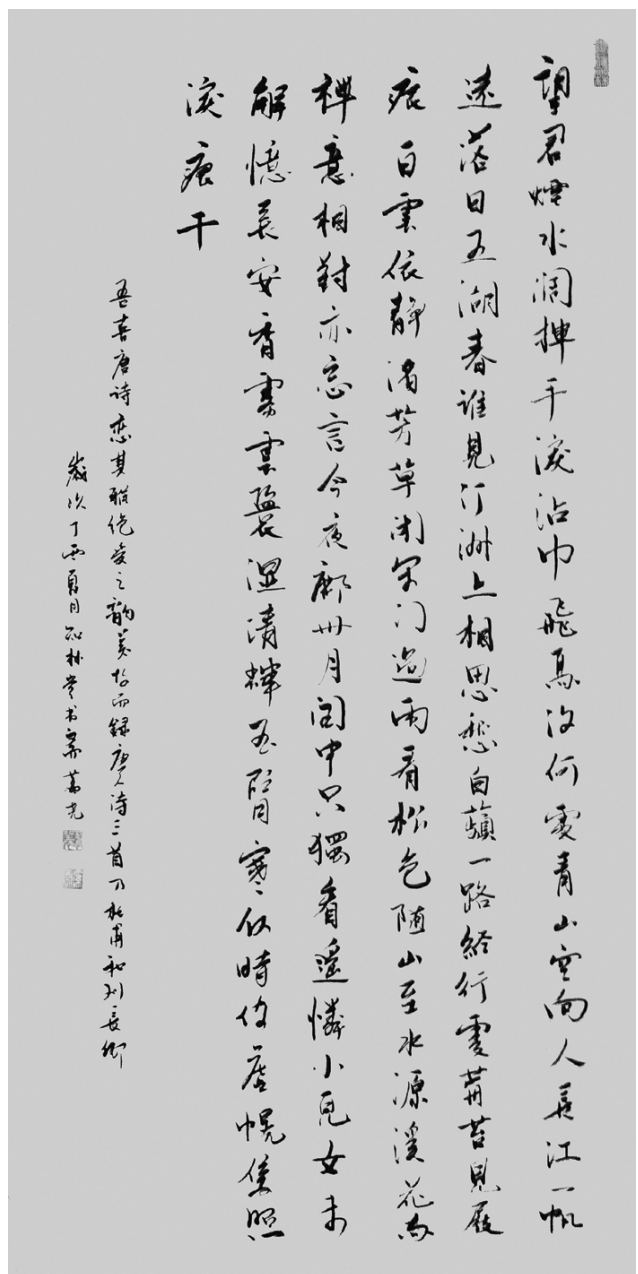 望君煙水闊揮手淚沾巾飛鳥沒何處青山空向人長江一帆
遠落日五湖春誰見汀洲上相思愁白蘋一路經行處莓苔見屐
痕白雲依靜渚芳草閉閑門過雨看松色隨山至水源溪花與
禪意相對亦忘言今夜鄜州月閨中只獨看遙憐小兒女未
解憶長安香霧雲鬟濕清輝玉臂寒何時倚虛幌雙照
淚痕干
吾喜唐詩戀其雕受之韻美故而錄唐人詩三首乃杜甫和刘長卿
歲次丁酉夏月於林書齋